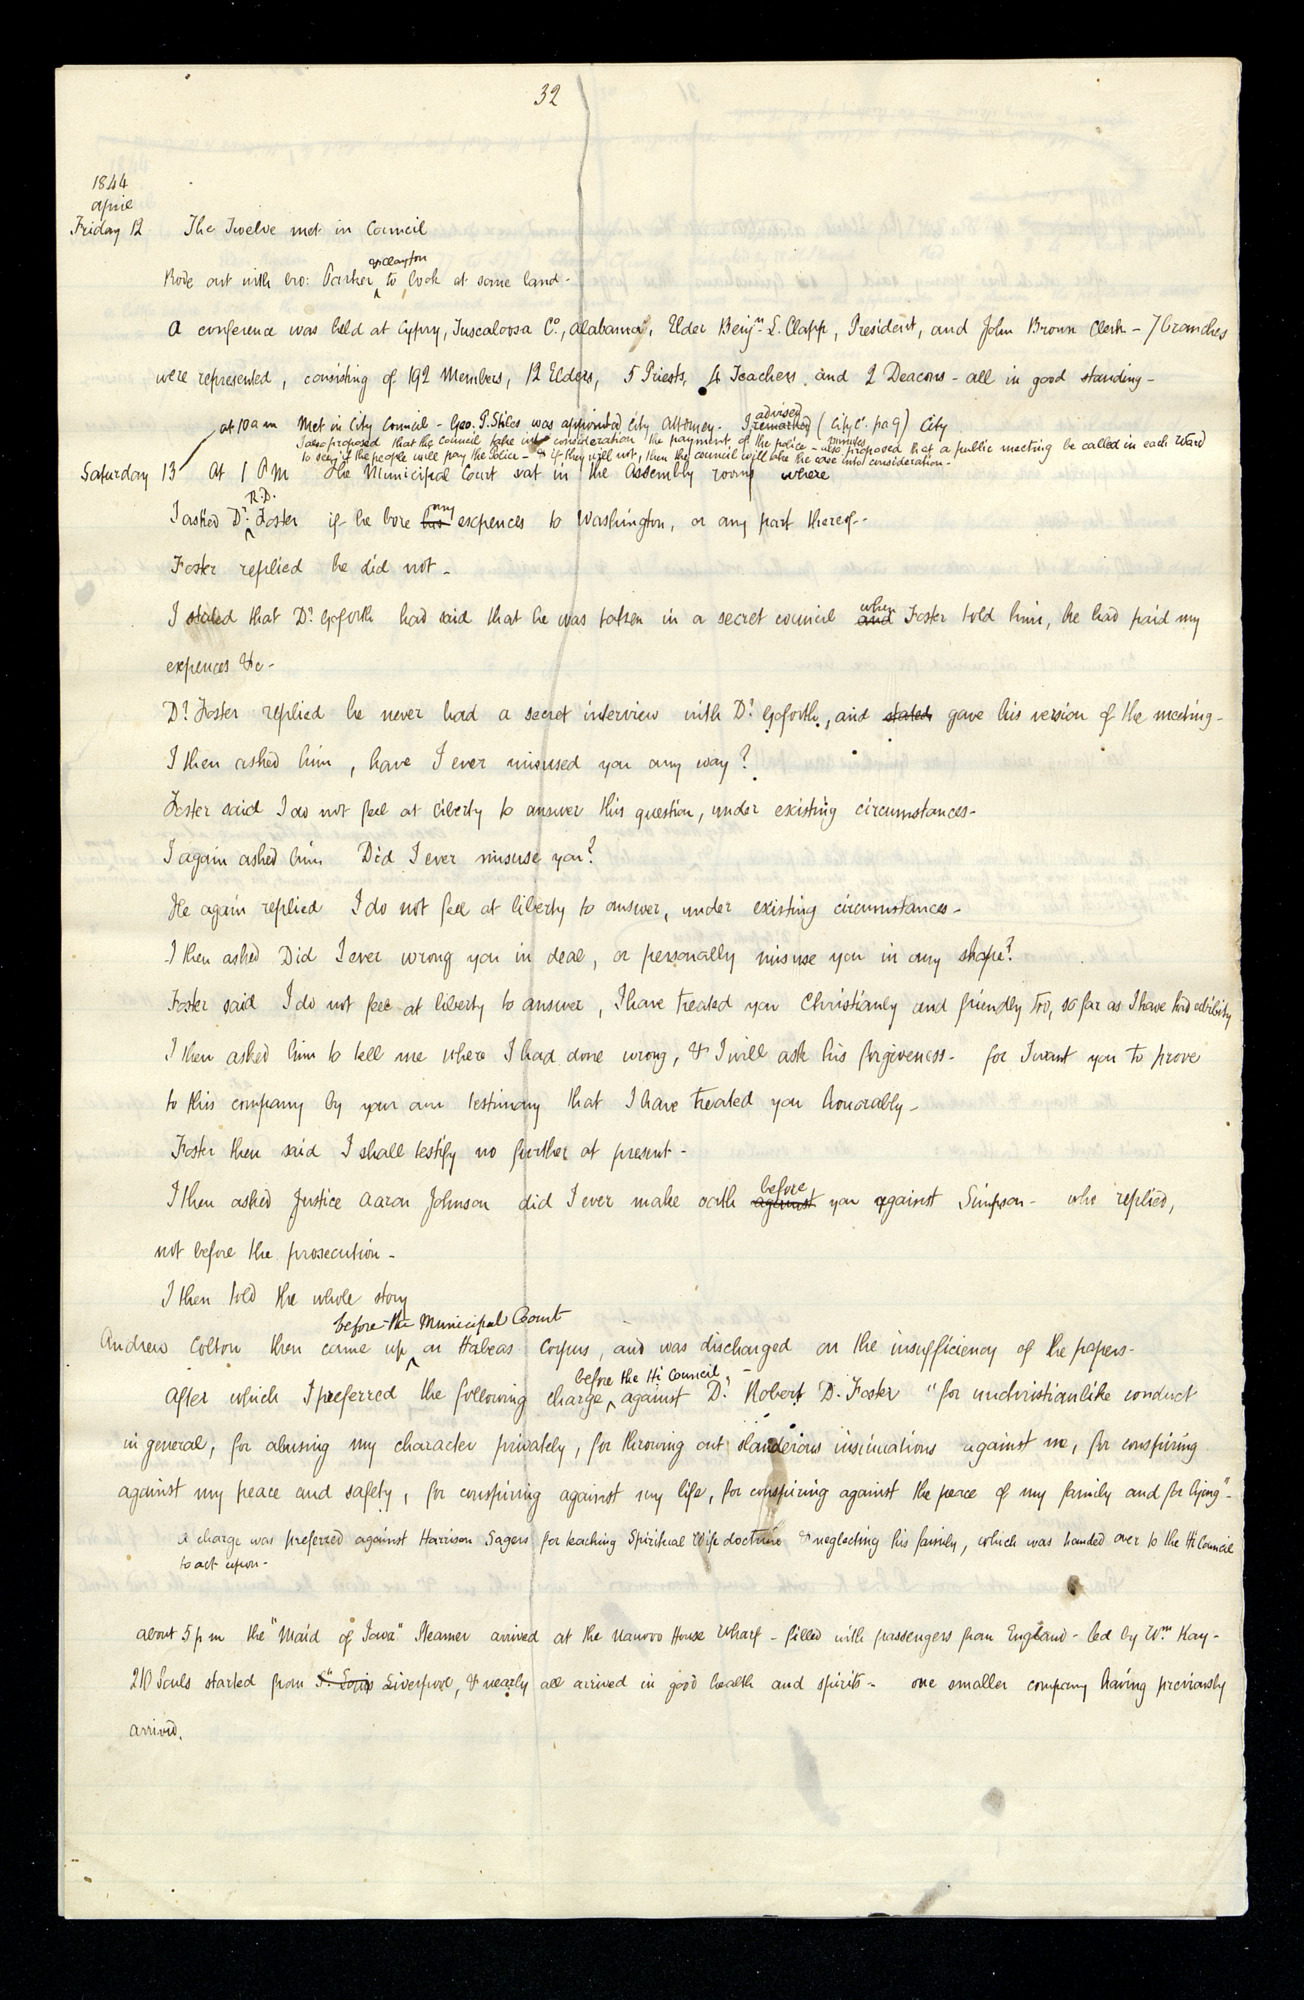 32
1844
april
Friday 12 The Twelve met in Council
Rode out with bro: Parker & Clayton to look at some land-
A conference was held at Cypry, Tuscaloosa Co., Alabama, Elder Benjn. L. Clapp, President, and John Brown Clerk - 7 branches
were represented, consisting of 192 Members, 12 Elders, 5 Priests, 4 Teachers, and 2 Deacons - all in good standing -
at 10 a m Met in City Council - Geo. P. Stiles was appointed City Attorney. I remarked advised (City C. pa 9) City minutes
I also proposed that the Council take into consideration the payment of the police - also proposed that a public meeting be called in each Ward
to see if the people will pay the Police - & if they will not, then the council will take the case into consideration -
Saturday 13 At 1 P M The Municipal Court sat in the Assembly room where
I asked Dr. R. D. Foster if he bore his my expences to Washington, or any part thereof-
Foster replied he did not -
I stated that Dr. Goforth had said that he was taken in a secret council and when Foster told him, he had paid my
expences &c -
Dr. Foster replied he never had a secret interview with Dr. Goforth, and stated gave his version of the meeting -
I then asked him, have I ever misused you any way?
Foster said I do not feel at liberty to answer this question, under existing circumstances -
I again asked him Did I ever misuse you?
He again replied I do not feel at liberty to answer, under existing circumstances -
I then asked Did I ever wrong you in deal, or personally misuse you in any shape?
Foster said I do not feel at liberty to answer, I have treated you Christianly and friendly too, so far as I have had ability
I then asked him to tell me where I had done wrong, & I will ask his forgiveness - for I want you to prove
to this company by your own testimony that I have treated you honorably -
Foster then said I shall testify no further at present -
I then asked Justice Aaron Johnson did I ever make oath against before you against Simpson - who replied,
not before the prosecution -
I then told the whole story
Andrew Colton then came up before the Municipal Court on Habeas Corpus, and was discharged on the insufficiency of the papers -
After which I preferred the following charge before the Hi Council, against Dr. Robert D. Foster "for unchristianlike conduct
in general, for abusing my character privately, for throwing out slanderous insinuations against me, for conspiring
against my peace and safety, for conspiring against my life, for conspiring against the peace of my family and for lying" -
A charge was preferred against Harrison Sagers for teaching Spiritual Wife doctrine & neglecting his family, which was handed over to the Hi Council
to act upon -
about 5 p m the "Maid of Iowa" Steamer arrived at the Nauvoo House Wharf - filled with passengers from England - led by Wm. Kay -
210 Souls started from St. Louis Liverpool, & nearly all arrived in good health and spirits - one smaller company having previously
arrived.